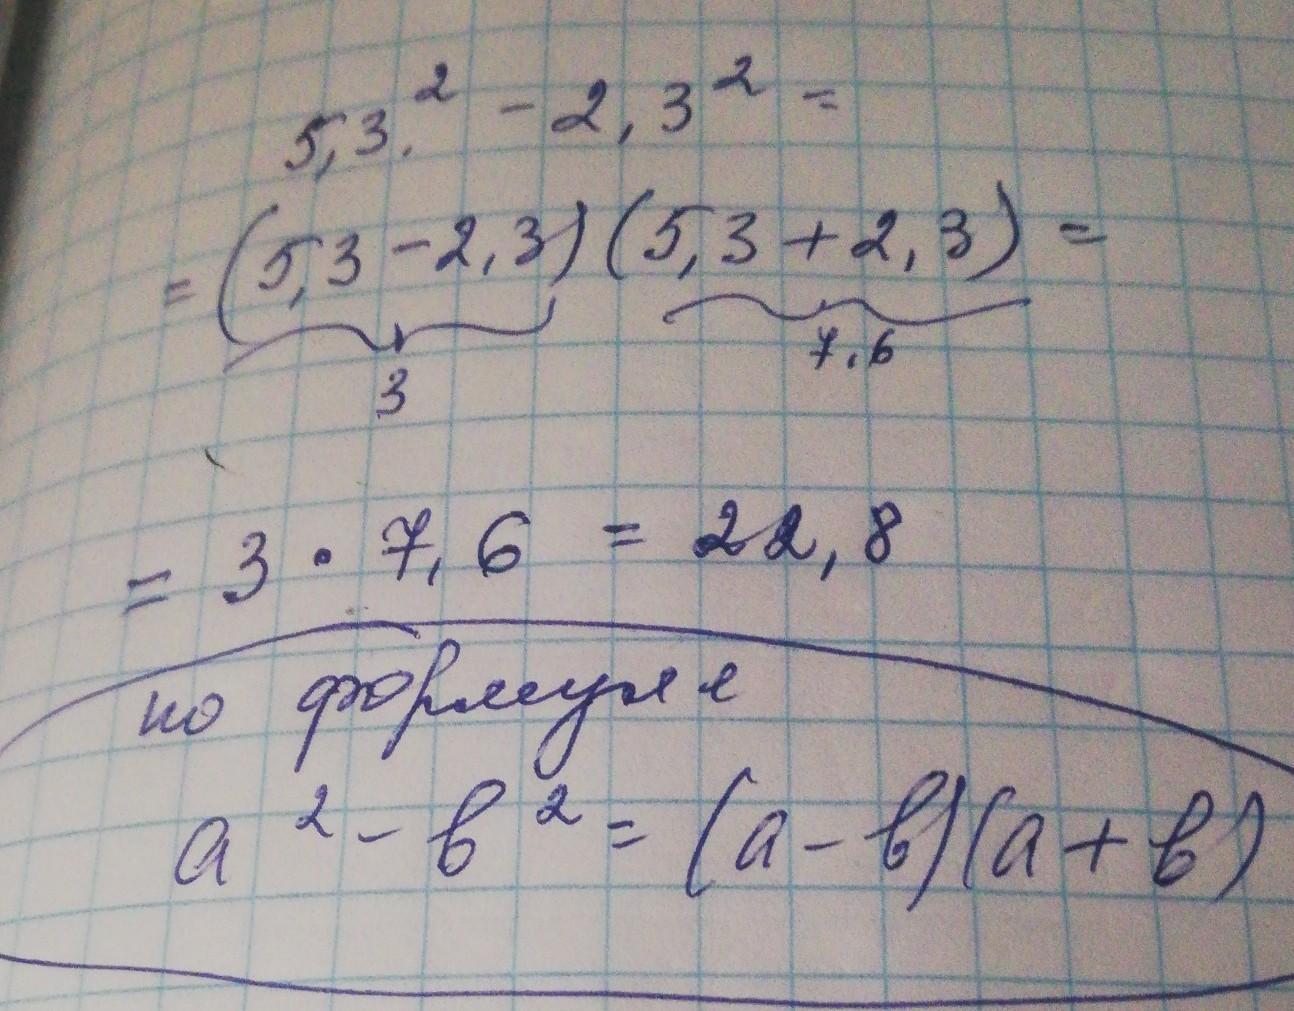 5,3.² - 2,3² =
= (5,3 - 2,3)(5,3 + 2,3) =
3 7,6
= 3 · 7,6 = 22,8
по формуле
а² - в² = (а - в)(а + в)